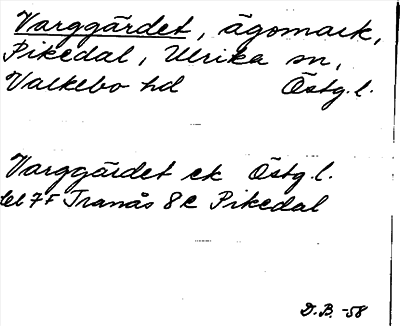 Varggärdet, ägomark,
Pikedal, Ulrika sn,
Valkebo hd Östg.l.
Varggärdet ek Östg.l.
bl 7F Tranås 8e Pikedal
D.B. -58